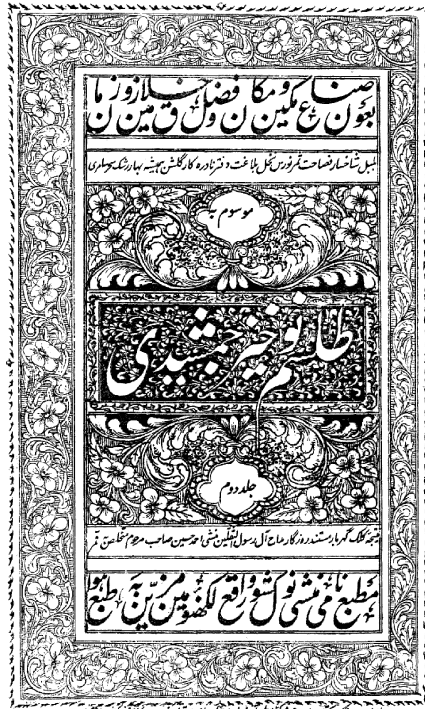 بعون صناع مکین و مکان و فضل خلاق زمین و زمان
بلبل شاخسار فصاحت ثمر نورس نخل بلاغت دفتر نادرہ کار گلشن ہمیشہ بہار رشک سحر سامری
موسوم بہ
طلسم نوخیز جمشیدی
جلد دوم
نتیجہ کلک گہربار مستند روزگار مداح آل رسول الثقلین منشی احمد حسین صاحب مرحوم متخلص قمر
مطبع نامی منشی نول کشور واقع لکھنؤ مین مزین بہ طبع ہوا